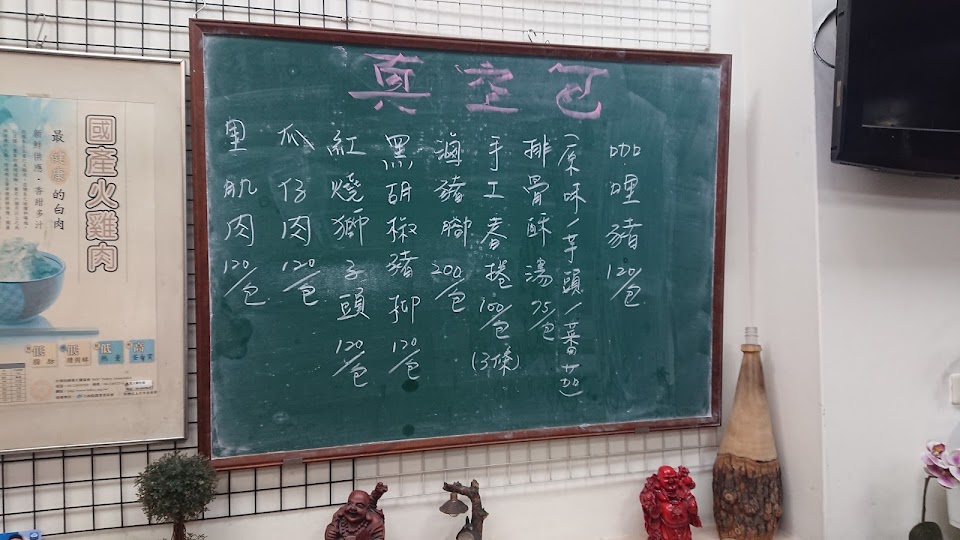 真空包
咖哩豬 120/包
(原味/芋頭/蕃茄)
排骨酥湯 75/包
手工春捲 100/包 (3條)
滷豬腳 200/包
黑胡椒豬柳 120/包
紅燒獅子頭 120/包
瓜仔肉 120/包
里肌肉 120/包
國產火雞肉
最健康的白肉
新鮮供應・香甜多汁
低脂肪
低膽固醇
低熱量
高蛋白質